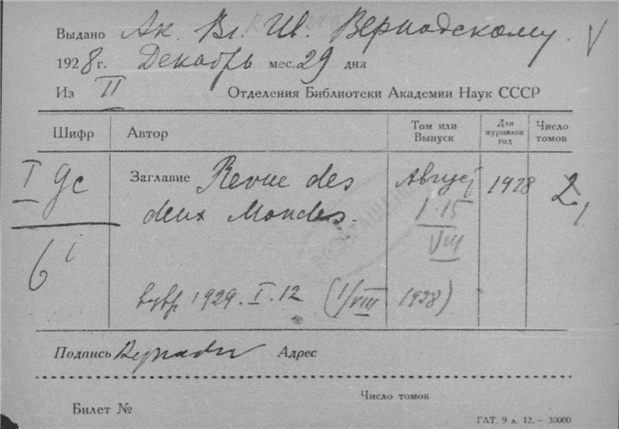 Выдано Ак. Вл. Ив. Вернадскому. V
1928 г. Декабрь мес. 29 дня
Из II Отделения Библиотеки Академии Наук СССР
Шифр Автор Том или Выпуск Для журналов год Число томов
I 9c Заглавие Revue des Август 1928 2
deux Mondes. 1-15 1
6 i VIII
1929. I. 12 (1/VIII 1928)
Подпись Адрес
Число томов
Билет №
ГАТ. 9 л. 12. – 30000